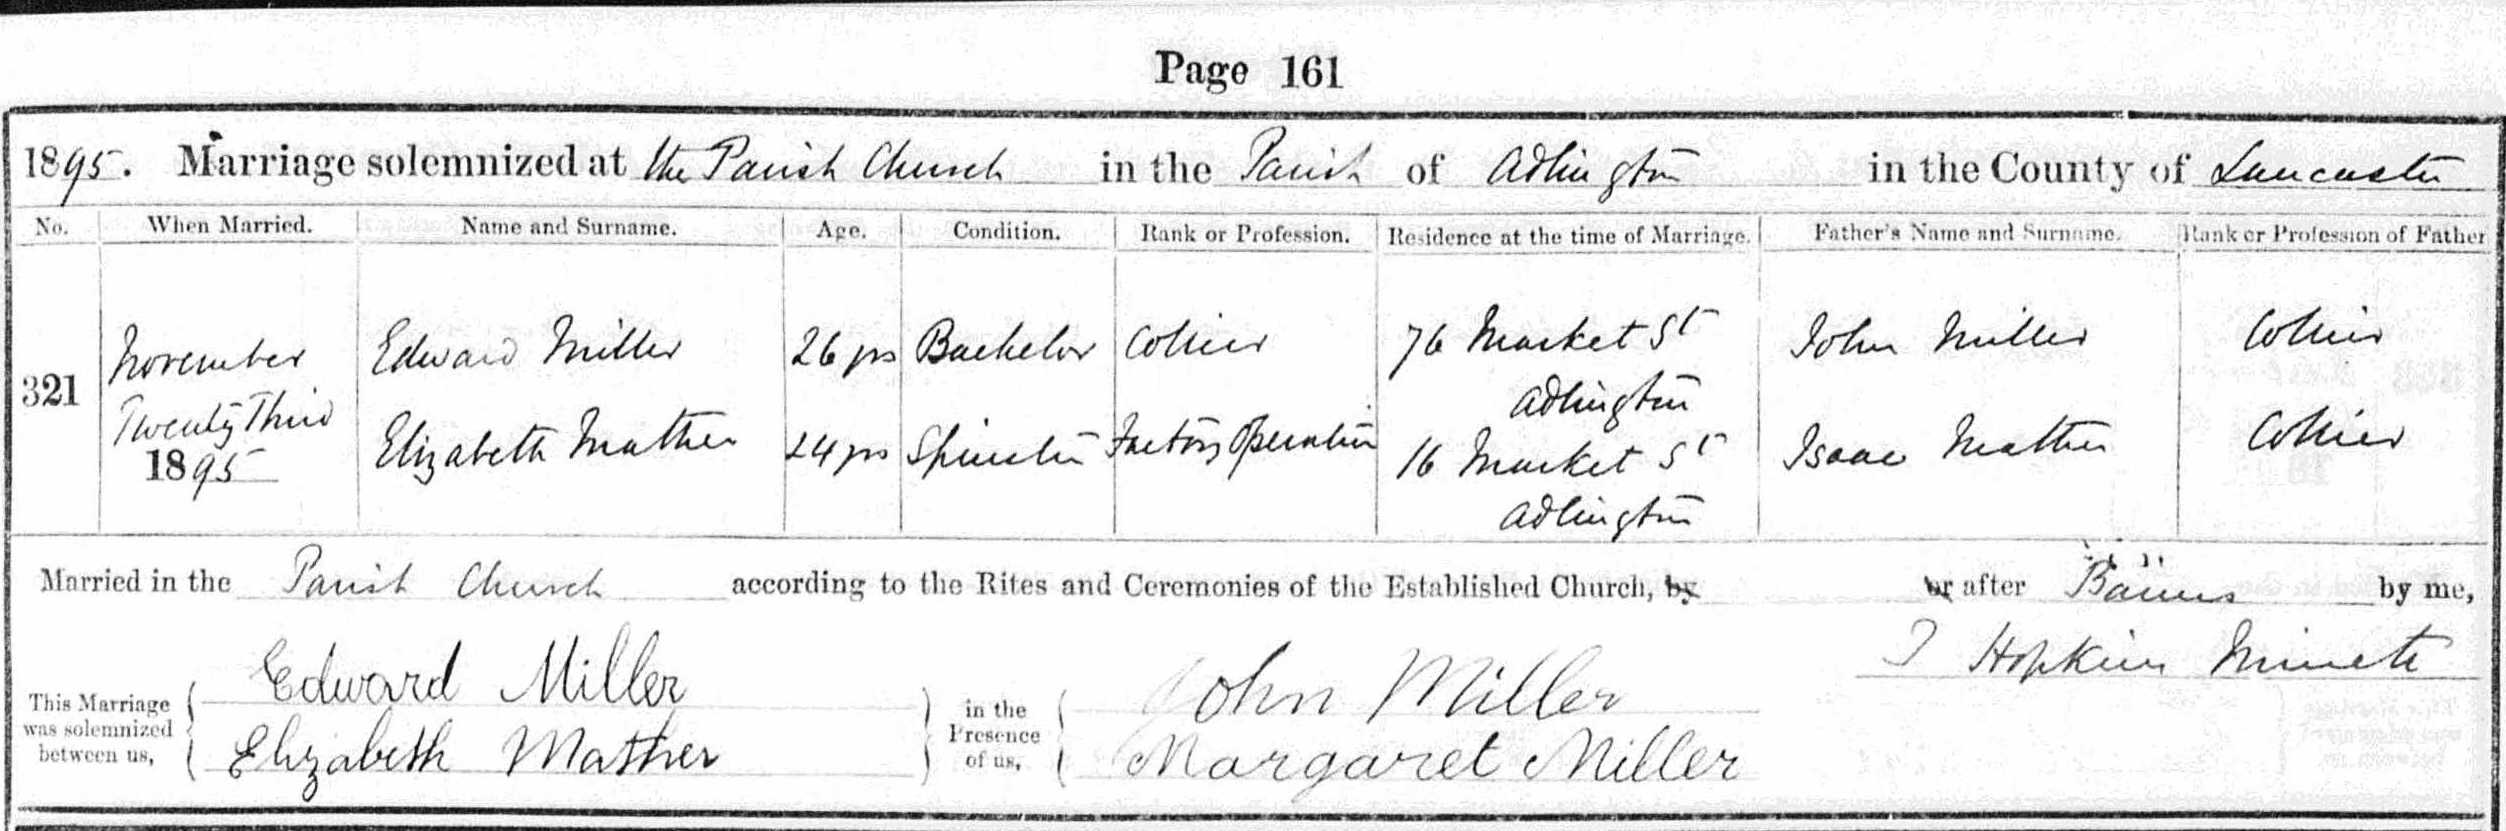 Page 161
1895. Marriage solemnized at the Parish Church in the Parish of Adlington in the County of Lancaster
No. When Married. Name and Surname. Age. Condition. Rank or Profession. Residence at the time of Marriage. Father's Name and Surname. Rank or Profession of Father
321
November
Twenty Third
1895
Edward Miller 26 yrs Bachelor Collier 76 Market St
Adlington
John Miller Collier
Elizabeth Mather 24 yrs Spinster Factory Operative 16 Market St
Adlington
Isaac Mather Collier
Married in the Parish Church according to the Rites and Ceremonies of the Established Church, by or after Banns by me,
Hopkins
This Marriage
was solemnized
between us,
Edward Miller
Elizabeth Mather
in the
Presence
of us,
John Miller
Margaret Miller